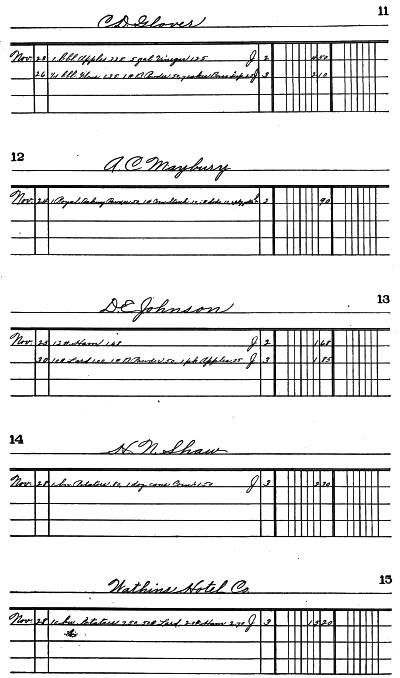 11
C D Glover
Nov. 23 1 bbl Apples 325 5 gal Vinegar 125 J 2 4 50
26 ½ bbl Flour 1 # B Powder 50 J 3 2 10
12
A. C. Maybury
Nov. 24 1 Royal Baking Powder 50 1 # Corn Starch J 2 90
13
D E Johnson
Nov. 25 12 # Ham 1 68 J 2 1 68
30 10 # Lard 1 00 1 # B Powder 50 1 pk Apples 35 J 3 1 85
14
H. N. Shaw
Nov. 28 1 bu Potatoes 80 1 doz cans Corn 1 50 J 3 2 30
15
Watkins Hotel Co.
Nov. 28 10 bu Potatoes 7 50 50 # Lard Ham 2 70 J 3 15 20